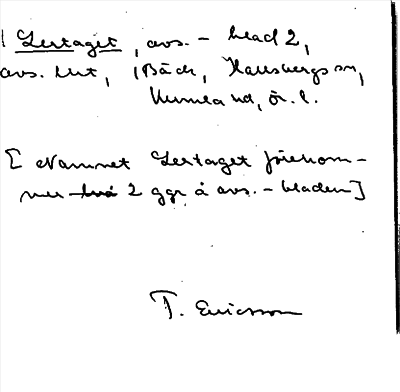 | Lertaget, avs. - blad 2,
avs. Lert, (Bäck, Hallsbergs sn,
Kumla hd, ör. l.
[ Namnet Lertaget förekom-
mer två 2 ggr å avs. - bladen]
T. Ericsson